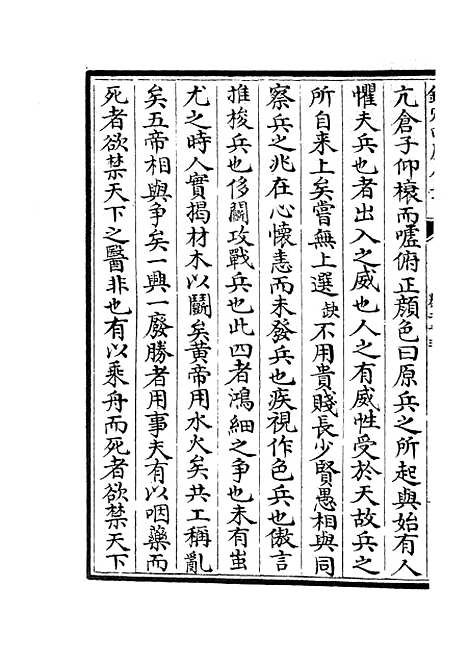 亢倉子仰榱而噓俯正顔色曰原兵之所起與始有人
懼夫兵也者出入之威也人之有威性受於天故兵之
所自来上矣嘗無上選缺不用貴賤長少賢愚相與同
察兵之兆在心懷恚而未發兵也疾視作色兵也傲言
推捘兵也侈鬭攻戰兵也此四者鴻細之争也未有蚩
尤之時人實揭材木以鬭矣黄帝用水火矣共工稱亂
矣五帝相與争矣一興一廢勝者用事夫有以咽藥而
死者欲禁天下之醫非也有以乘舟而死者欲禁天下